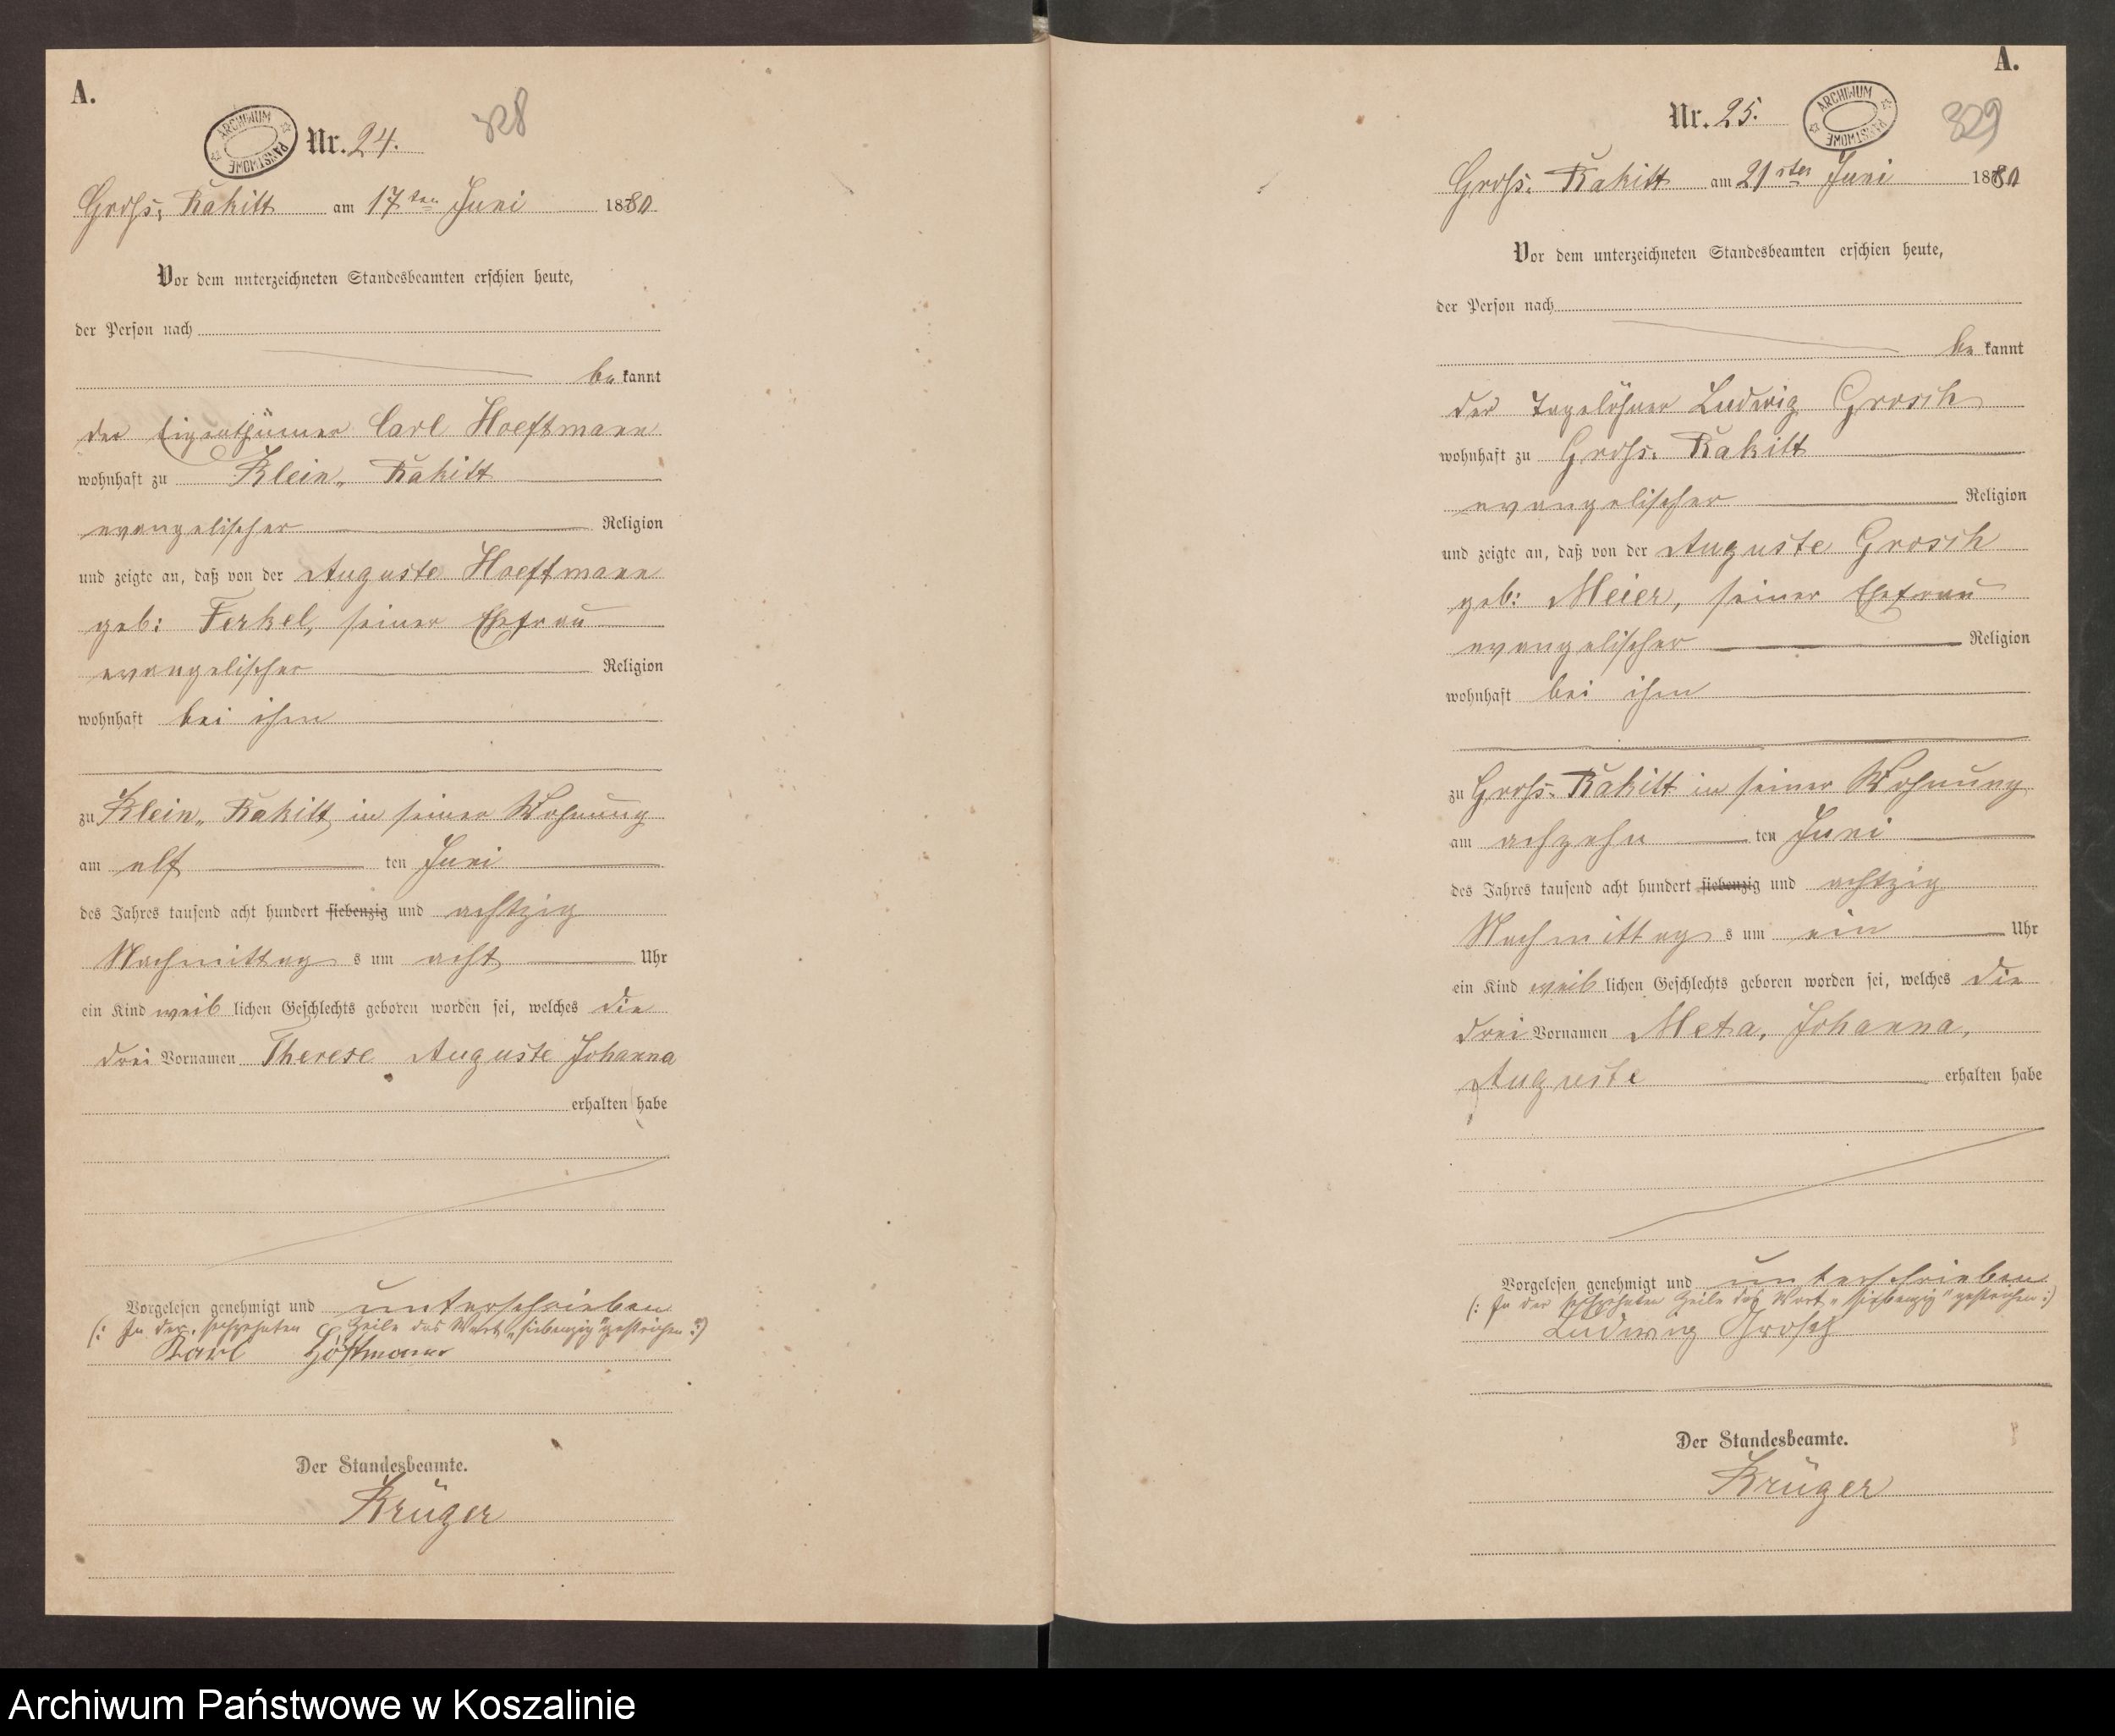 A.
ARCHIWUM PAŃSTWOWE
Nr. 24.
328
Groß, Rakitt am 17ten Juni 1880
Vor dem unterzeichneten Standesbeamten erschien heute,
der Person nach
be kannt
der Eigenthümer Carl Hoeftmann
wohnhaft zu Klein„ Rakitt
evangelischer Religion
und zeigte an, daß von der Auguste Hoeftmann
geb: Ferkel, seiner Ehefrau
evangelischer Religion
wohnhaft bei ihm
zu Klein„ Rakitt, in seiner Wohnung
am elf ten Juni
des Jahres tausend acht hundert siebenzig und achtzig
Nachmittag s um acht Uhr
ein Kind weib lichen Geschlechts geboren worden sei, welches die
drei Vornamen Therese Auguste Johanna
erhalten habe
Vorgelesen genehmigt und unterschrieben
(: In der sechzehnten Zeile das Wort „siebenzig" gestrichen :)
Karl Höftmann
Der Standesbeamte.
Krüger
A.
Nr. 25.
ARCHIWUM PAŃSTWOWE
329
Groß. Rakitt am 21sten Juni 1880
Vor dem unterzeichneten Standesbeamten erschien heute,
der Person nach
be kannt
der Tagelöhner Ludwig Grosch
wohnhaft zu Groß. Rakitt
evangelischer Religion
und zeigte an, daß von der Auguste Grosch
geb: Meier, seiner Ehefrau
evangelischer Religion
wohnhaft bei ihm
zu Groß. Rakitt in seiner Wohnung
am achzehn ten Juni
des Jahres tausend acht hundert siebenzig und achtzig
Nachmittag s um ein Uhr
ein Kind weib lichen Geschlechts geboren worden sei, welches die
drei Vornamen Meta, Johanna,
Auguste erhalten habe
Vorgelesen genehmigt und unterschrieben
(: In der sechzehnten Zeile das Wort „siebenzig" gestrichen :)
Ludwig Grosch
Der Standesbeamte.
Krüger
Archiwum Państwowe w Koszalinie